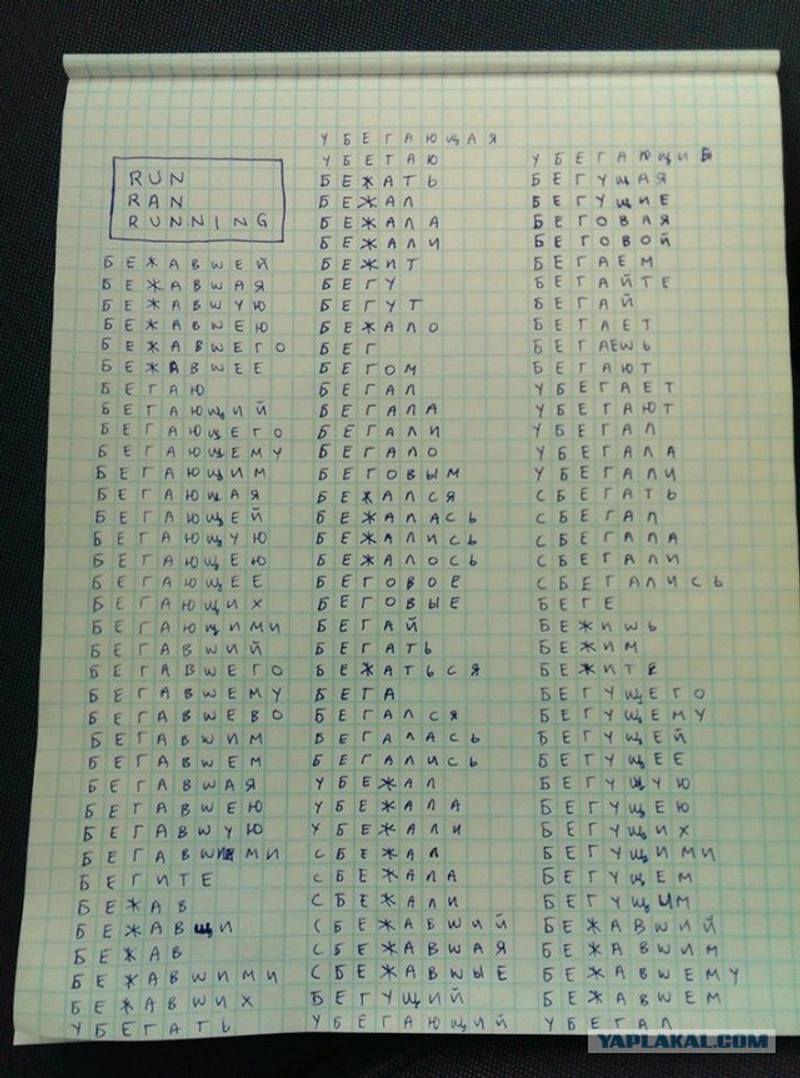 RUN
RAN
RUNNING
БЕЖАВШЕЙ
БЕЖАВШАЯ
БЕЖАВШУЮ
БЕЖАВШЕЮ
БЕЖАВШЕГО
БЕЖАВШЕЕ
БЕГАЮ
БЕГАЮЩИЙ
БЕГАЮЩЕГО
БЕГАЮЩЕМУ
БЕГАЮЩИМ
БЕГАЮЩАЯ
БЕГАЮЩЕЙ
БЕГАЮЩУЮ
БЕГАЮЩЕЮ
БЕГАЮЩЕЕ
БЕГАЮЩИХ
БЕГАЮЩИМИ
БЕГАВШИЙ
БЕГАВШЕГО
БЕГАВШЕМУ
БЕГАВШЕВО
БЕГАВШИМ
БЕГАВШЕМ
БЕГАВШАЯ
БЕГАВШЕЮ
БЕГАВШУЮ
БЕГАВШИМИ
БЕГИТЕ
БЕЖАВ
БЕЖАВЩИ
БЕЖАВ
БЕЖАВШИМИ
БЕЖАВШИХ
УБЕГАТЬ
УБЕГАЮЩАЯ
УБЕГАЮ
БЕЖАТЬ
БЕЖАЛ
БЕЖАЛА
БЕЖАЛИ
БЕЖИТ
БЕГУ
БЕГУТ
БЕЖАЛО
БЕГ
БЕГОМ
БЕГАЛ
БЕГАЛА
БЕГАЛИ
БЕГАЛО
БЕГОВЫМ
БЕЖАЛСЯ
БЕЖАЛАСЬ
БЕЖАЛИСЬ
БЕЖАЛОСЬ
БЕГОВОЕ
БЕГОВЫЕ
БЕГАЙ
БЕГАТЬ
БЕЖАТЬСЯ
БЕГА
БЕГАЛСЯ
БЕГАЛАСЬ
БЕГАЛИСЬ
УБЕЖАЛ
УБЕЖАЛА
УБЕЖАЛИ
СБЕЖАЛ
СБЕЖАЛА
СБЕЖАЛИ
СБЕЖАВШИЙ
СБЕЖАВШАЯ
СБЕЖАВШЫЕ
БЕГУЩИЙ
УБЕГАЮЩИЙ
БЕГУЩАЯ
БЕГУЩИЕ
БЕГОВАЯ
БЕГОВОЙ
БЕГАЕМ
БЕГАЙТЕ
БЕГАЙ
БЕГАЕТ
БЕГАЕШЬ
БЕГАЮТ
УБЕГАЕТ
УБЕГАЮТ
УБЕГАЛ
УБЕГАЛА
УБЕГАЛИ
СБЕГАТЬ
СБЕГАЛ
СБЕГАЛА
СБЕГАЛИ
СБЕГАЛИСЬ
БЕГЕ
БЕЖИШЬ
БЕЖИМ
БЕЖИТЕ
БЕГУЩЕГО
БЕГУЩЕМУ
БЕГУЩЕЙ
БЕГУЩЕЕ
БЕГУЩУЮ
БЕГУЩЕЮ
БЕГУЩИХ
БЕГУЩИМИ
БЕГУЩЕМ
БЕГУЩИМ
БЕЖАВШИЙ
БЕЖАВШИМ
БЕЖАВШЕМУ
БЕЖАВШЕМ
УБЕГАЛ
YAPLAKAL.COM